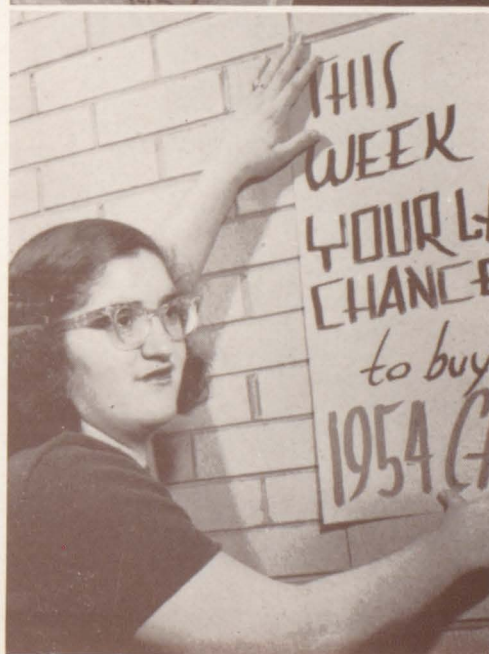 THIS
WEEK
YOUR LA
CHANCE
to buy
1954 CA